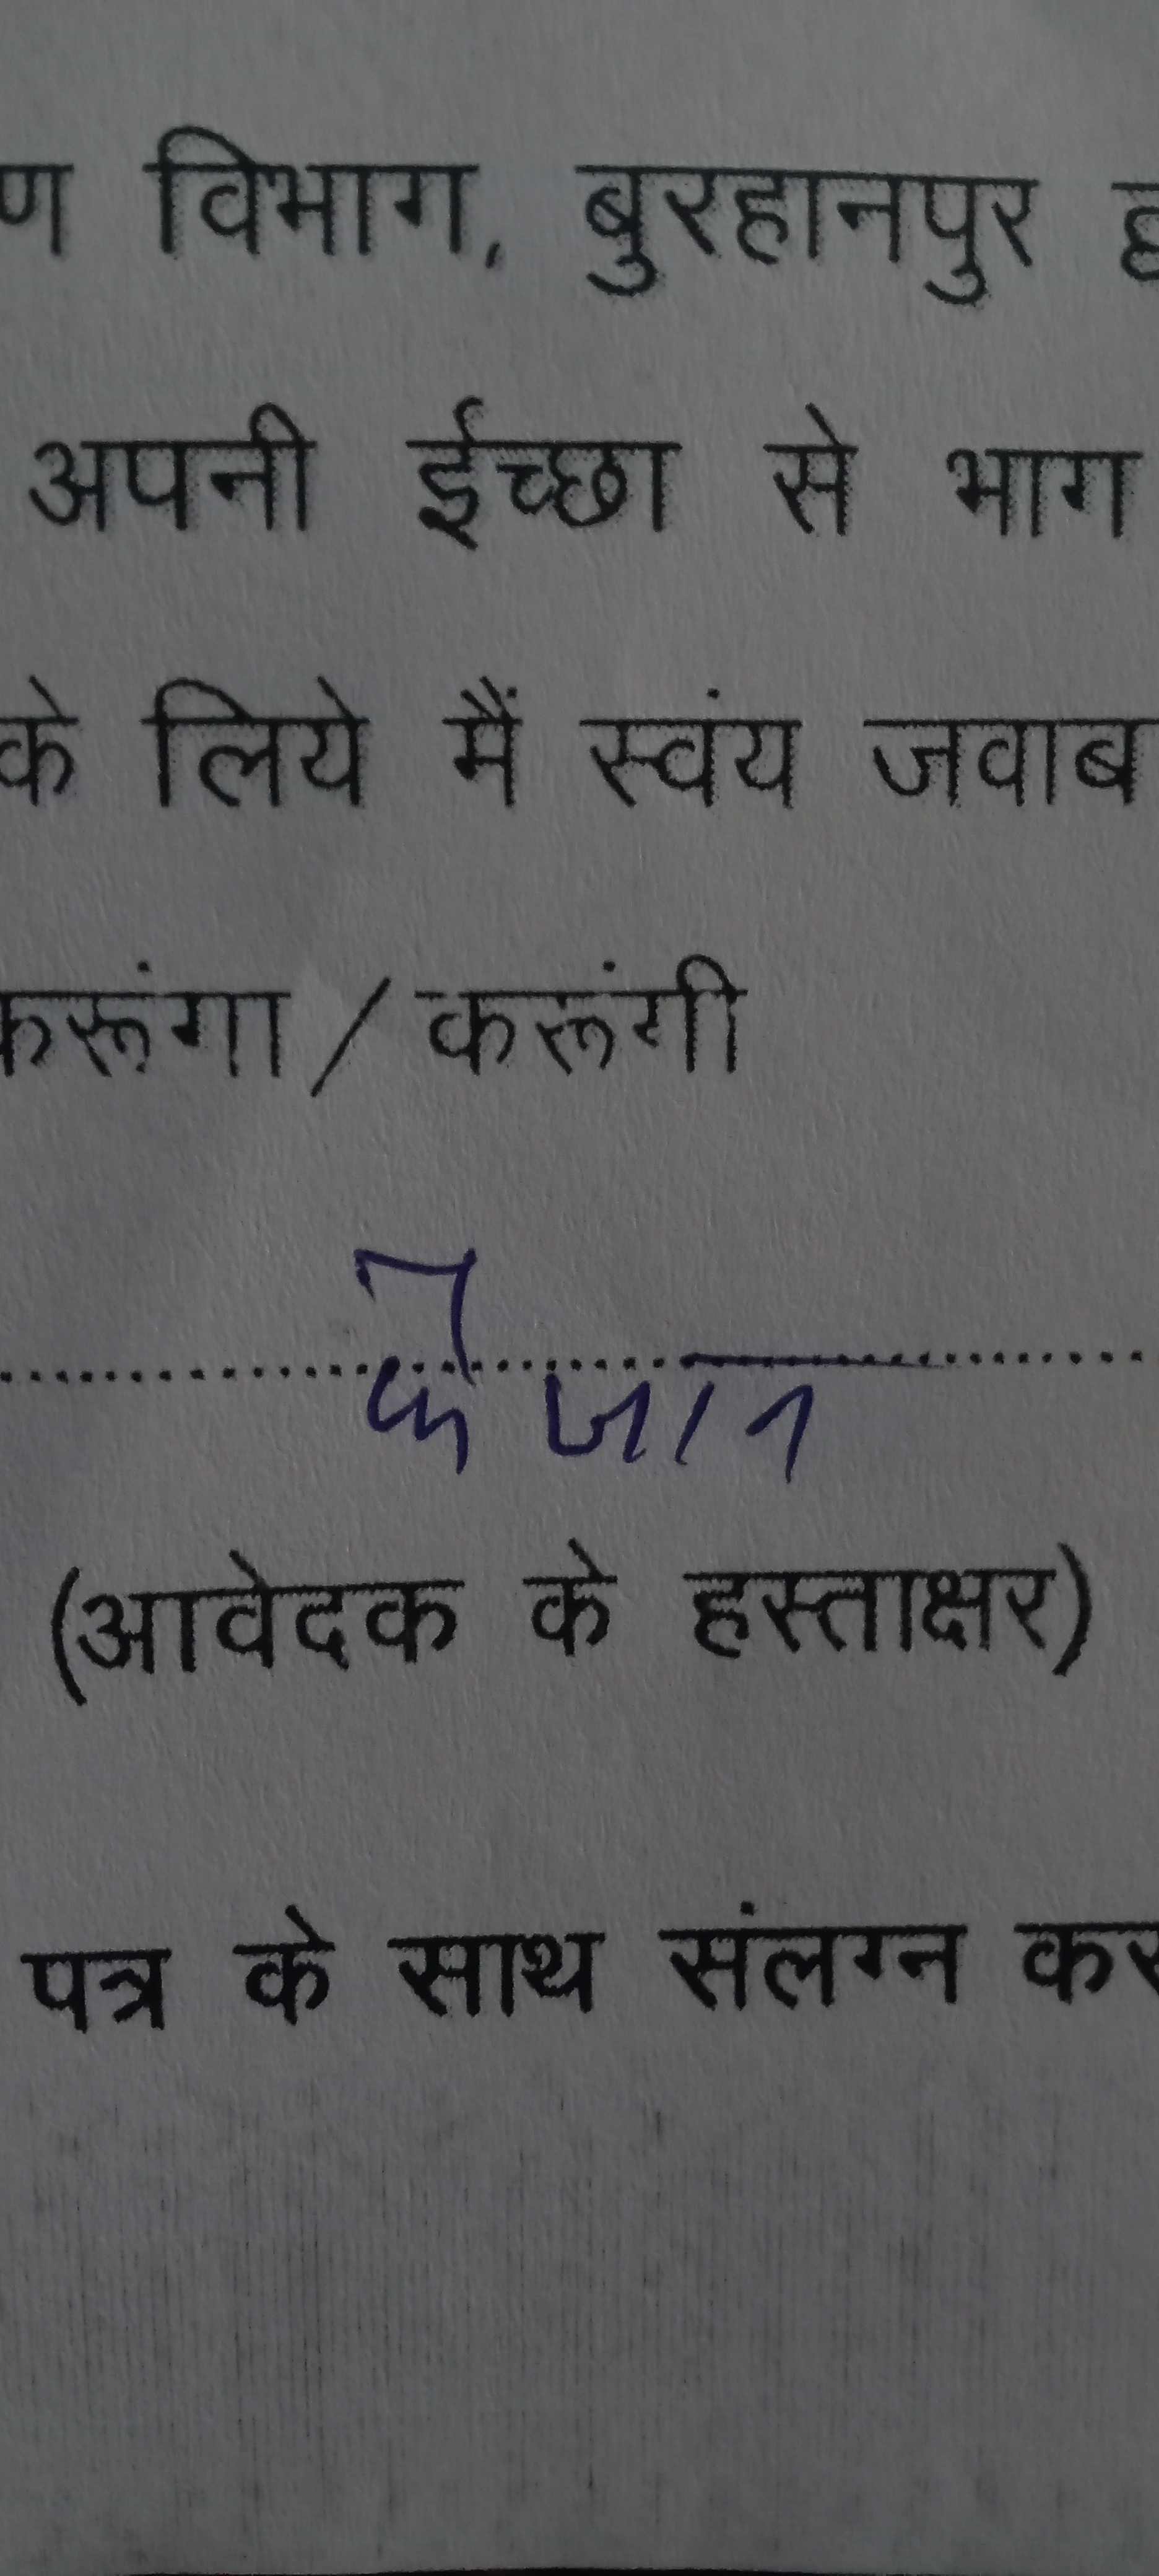 ण विभाग, बुरहानपुर द्व
अपनी ईच्छा से भाग
के लिये मैं स्वंय जवाब
करूंगा / करूंगी
फैजान
(आवेदक के हस्ताक्षर)
पत्र के साथ संलग्न कर